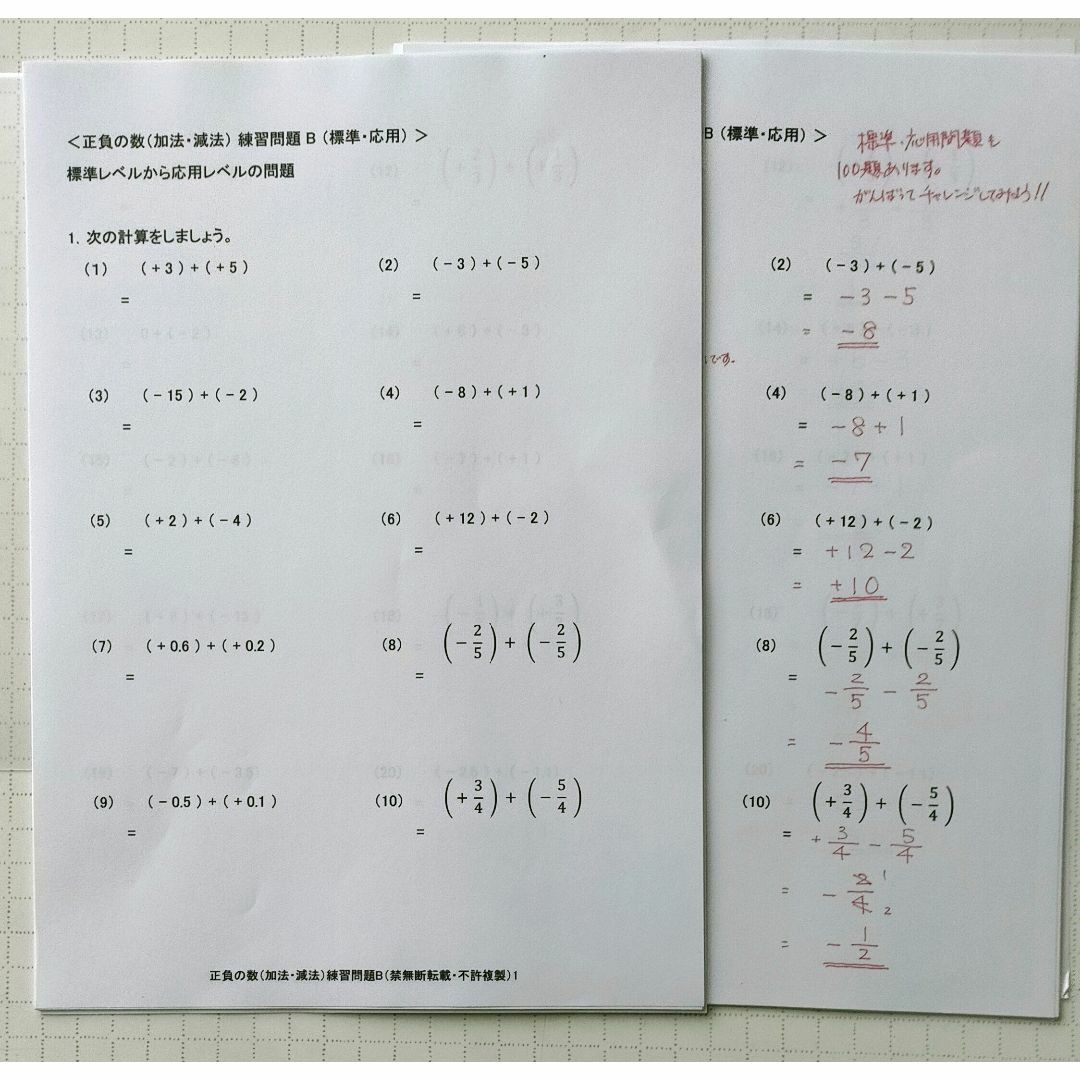 ＜正負の数（加法・減法） 練習問題 B （標準・応用）＞
標準レベルから応用レベルの問題
1．次の計算をしましょう。
(1) (＋3)＋(＋5)
=
(2) (－3)＋(－5)
=
(3) (－15)＋(－2)
=
(4) (－8)＋(＋1)
=
(5) (＋2)＋(－4)
=
(6) (＋12)＋(－2)
=
(7) (＋0.6)＋(＋0.2)
=
(8) (－2/5)＋(－2/5)
=
(9) (－0.5)＋(＋0.1)
=
(10) (＋3/4)＋(－5/4)
=
正負の数（加法・減法）練習問題B（禁無断転載・不許複製）1
B （標準・応用）＞
標準・応用問題も
100題あります。
がんばってチャレンジしてみよう!!
(2) (－3)＋(－5)
= －3－5
= －8
です。
(4) (－8)＋(＋1)
= －8＋1
= －7
(6) (＋12)＋(－2)
= ＋12－2
= ＋10
(8) (－2/5)＋(－2/5)
= －2/5 － 2/5
= －4/5
(10) (＋3/4)＋(－5/4)
= ＋3/4 － 5/4
= －2/4 1 2
= －1/2